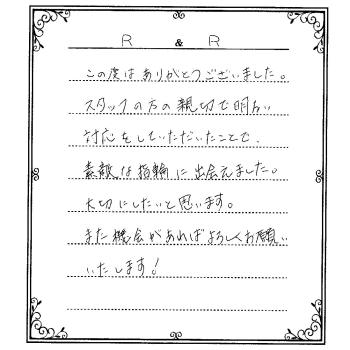 R & R
この度はありがとうございました。
スタッフの方の親切で明るい
対応をしていただいたことで、
素敵な指輪に出会えました。
大切にしたいと思います。
また機会があればよろしくお願い
いたします!